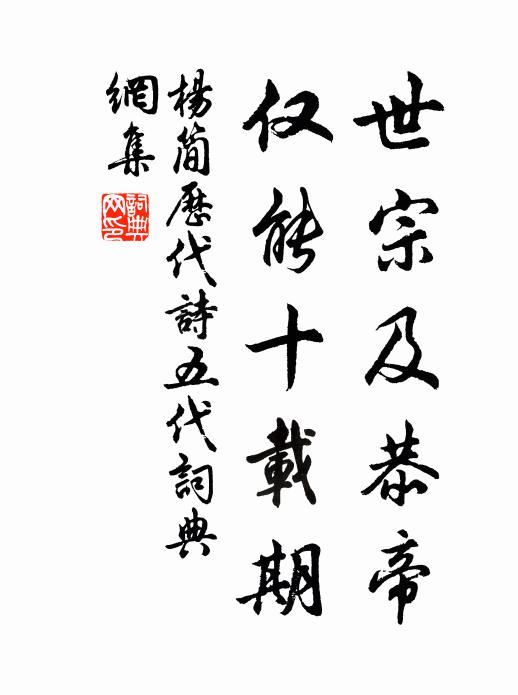 世宗及恭帝
仅能十載期
楊简歷代詩五代詞典
網集
詞典
网印